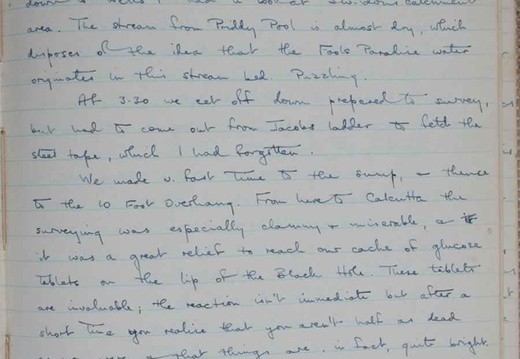 down to Wells I had a look at catchment
area. The stream from Priddy Pool is almost dry, which
disposes of the idea that the Fools Paradise water
originates in this stream bed. Puzzling.
At 3.30 we set off down prepared to survey,
but had to come out from Jacobs ladder to fetch the
steel tape, which I had forgotten.
We made v. fast time to the sump, & thence
to the 10 Foot Overhang. From here to Calcutta the
surveying was especially clammy & miserable, &
it was a great relief to reach our cache of glucose
tablets on the lip of the Black Hole. These tablets
are invaluable; the reaction isn't immediate but after a
short time you realise that you aren't half as dead
that things are, in fact, quite bright.